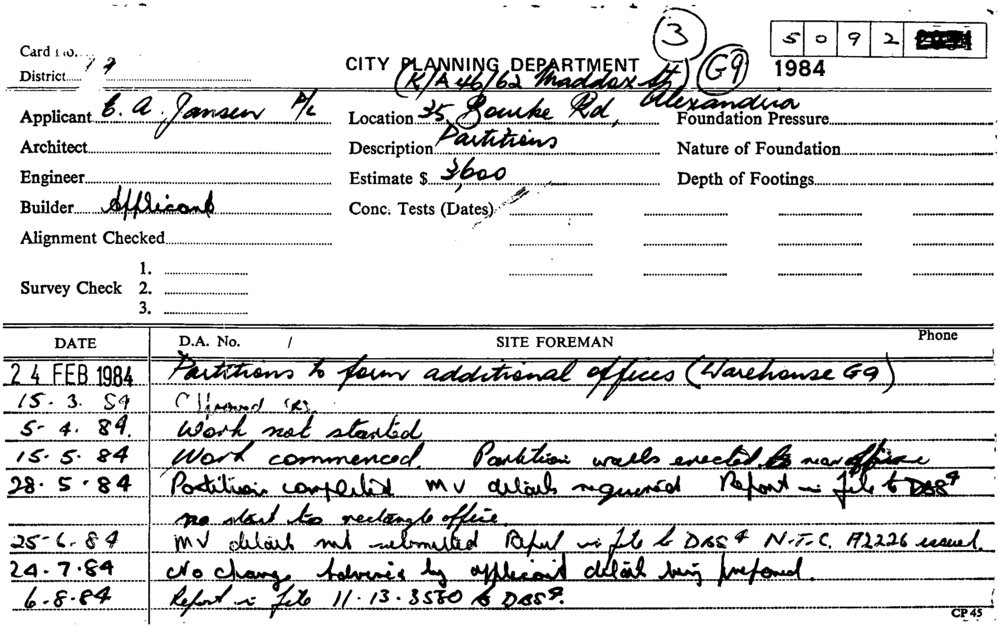 3
5 0 9 2
Card No.
CITY PLANNING DEPARTMENT
G9
1984
District
(R/A 46/62 Maddox St)
Alexandria
Applicant E. A. Jansen P/L
Location 35 Bourke Rd,
Foundation Pressure
Architect
Description Partitions
Nature of Foundation
Engineer
Estimate $ 3,600
Depth of Footings
Builder Applicant
Conc. Tests (Dates)
Alignment Checked
Survey Check
1.
2.
3.
DATE D.A. No. / SITE FOREMAN Phone
24 FEB 1984 Partitions to form additional offices (Warehouse G9)
15. 3. 84
5- 4. 84. Work not started
15. 5. 84 Work commenced. Partition walls erected to rear
28. 5. 84 Partition completed MV details required Report in file to DBS4
no start to rectangle office
25-6-84 MV details not submitted Report in file to DBS4 N.T.C. A2226 issued.
24.7.84 No change. Advised by applicant detail being prepared.
6.8.84 Report in file 11.13.3580 to DBS4.
CP 45